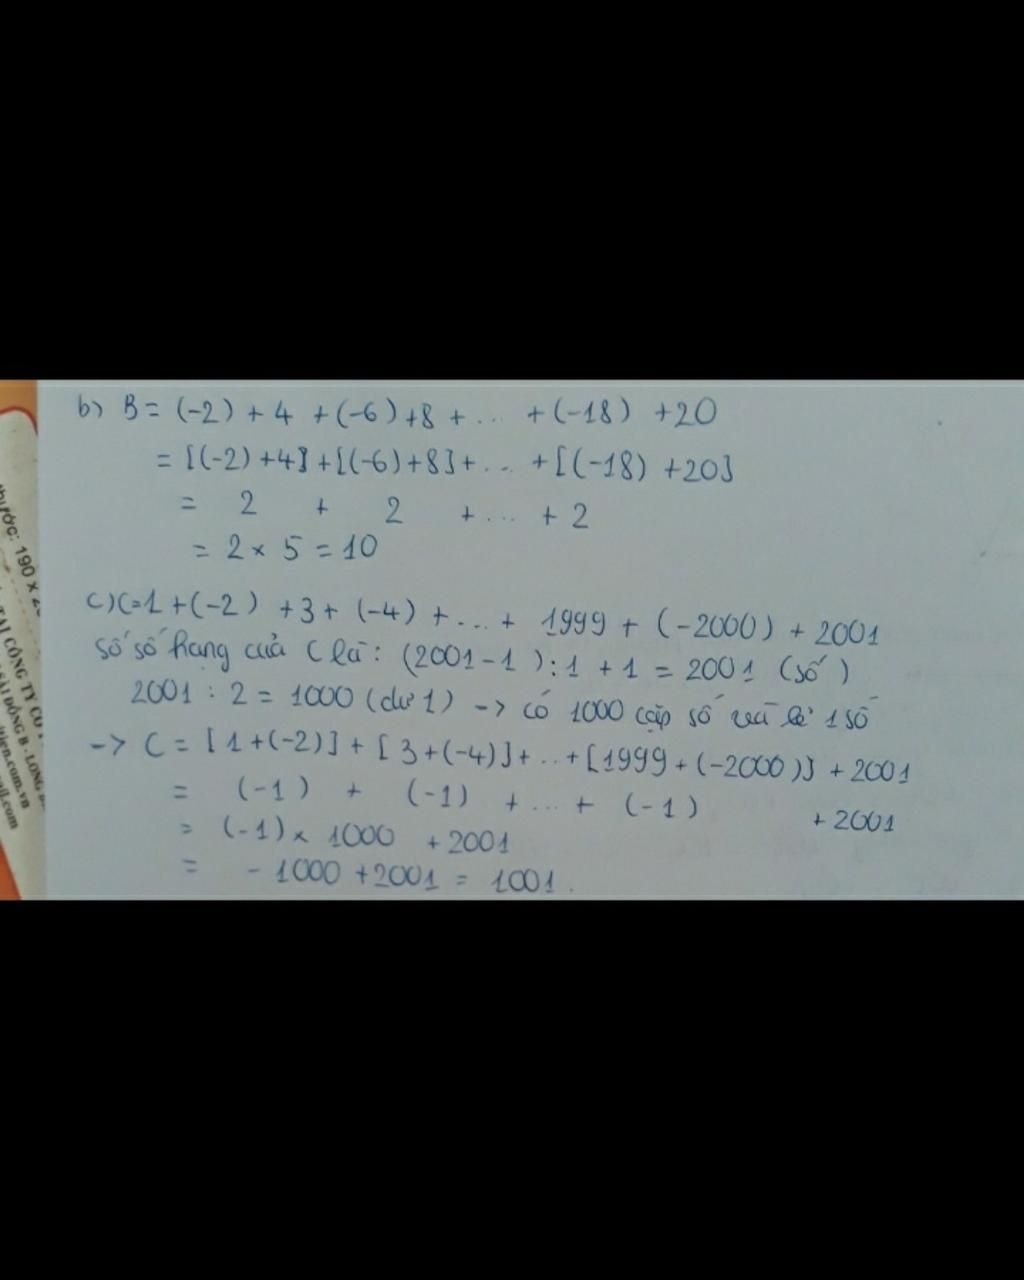 b) B = (-2) + 4 + (-6) + 8 + ... + (-18) + 20
= [(-2) + 4] + [(-6) + 8] + ... + [(-18) + 20]
= 2 + 2 + ... + 2
= 2 × 5 = 10
c) C = 1 + (-2) + 3 + (-4) + ... + 1999 + (-2000) + 2001
số số hạng của C là: (2001 - 1) : 1 + 1 = 2001 (số)
2001 : 2 = 1000 (dư 1) -> có 1000 cặp số và lẻ 1 số
-> C = [1 + (-2)] + [3 + (-4)] + ... + [1999 + (-2000)] + 2001
= (-1) + (-1) + ... + (-1) + 2001
= (-1) × 1000 + 2001
= - 1000 + 2001 = 1001.
thước: 190 x
TẠI CÔNG TY CỔ
SÀI ĐỒNG B - LONG
tien.com.vn
ail.com